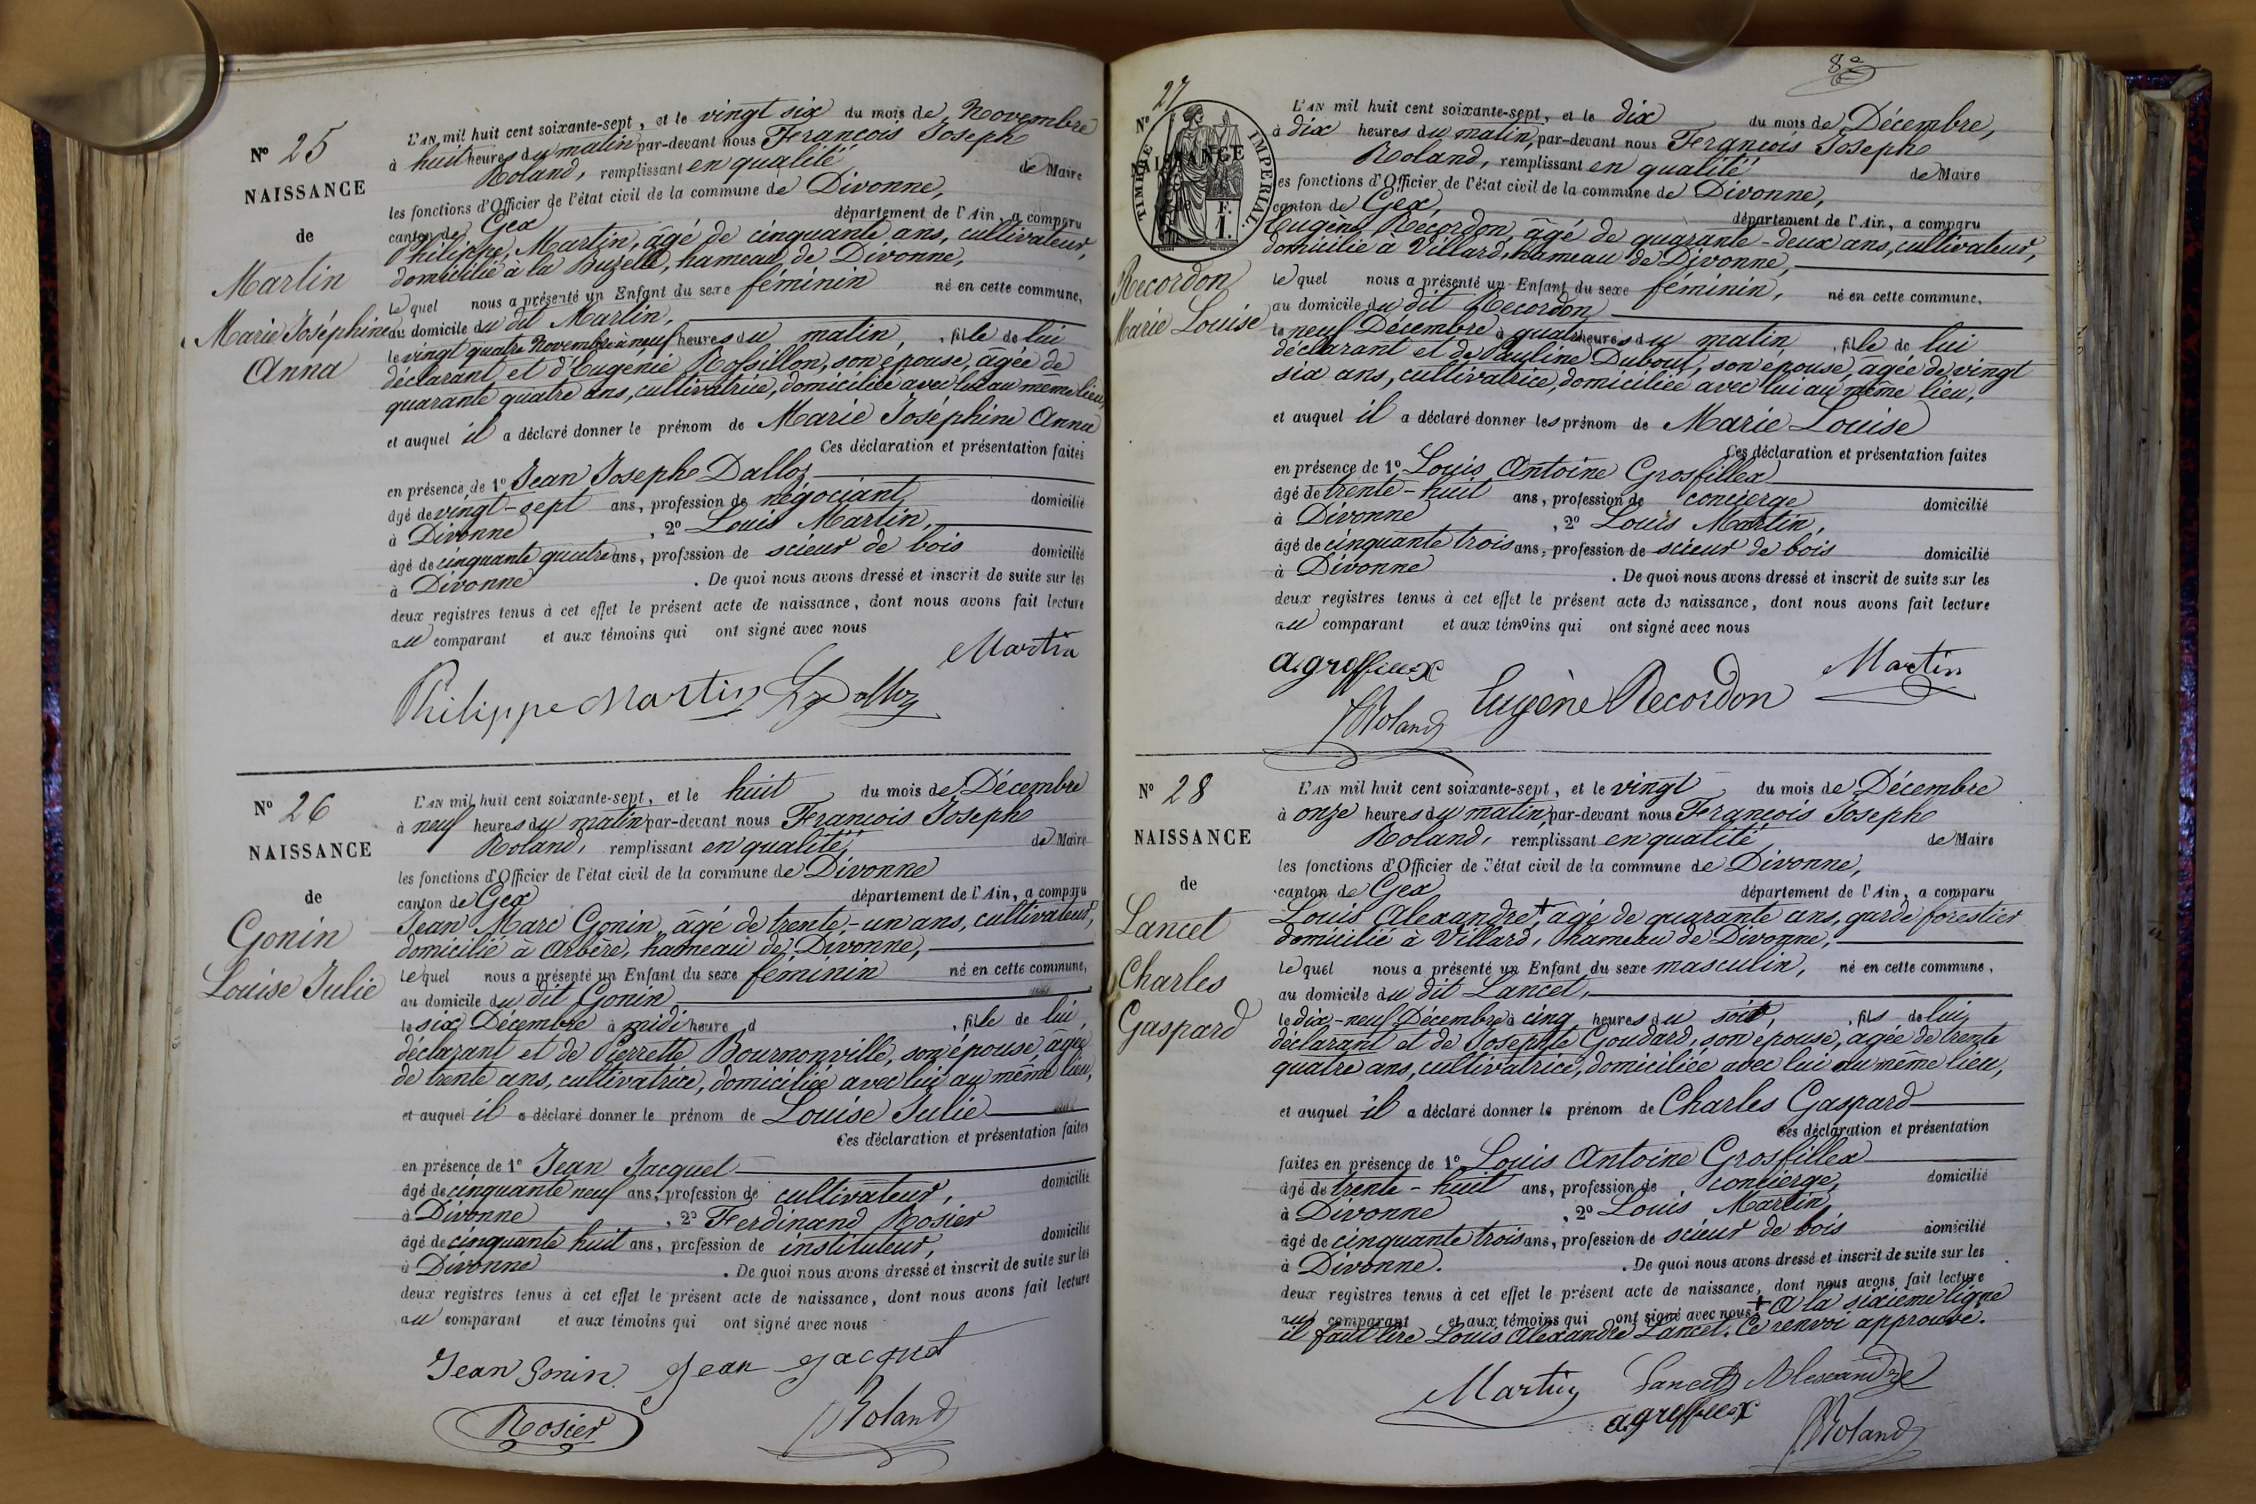 Nº 25
NAISSANCE
de
Martin
Marie Joséphine
Anna
L'AN mil huit cent soixante-sept, et le vingt six du mois de Novembre
à huit heures du matin par-devant nous François Joseph
Roland, remplissant en qualité de Maire
les fonctions d'Officier de l'état civil de la commune de Divonne,
canton de Gex département de l'Ain, a comparu
Philippe Martin, âgé de cinquante ans, cultivateur,
domicilié à la Buzelle, hameau de Divonne,
lequel nous a présenté un Enfant du sexe féminin né en cette commune,
au domicile du dit Martin,
le vingt quatre Novembre à neuf heures du matin, fille de lui
déclarant et d'Eugénie Rossillon, son épouse, âgée de
quarante quatre ans, cultivatrice, domiciliée avec lui au même lieu,
et auquel il a déclaré donner le prénom de Marie Joséphine Anna
Ces déclaration et présentation faites
en présence de 1º Jean Joseph Dalloz
âgé de vingt-sept ans, profession de négociant, domicilié
à Divonne, 2º Louis Martin,
âgé de cinquante quatre ans, profession de scieur de bois domicilié
à Divonne. De quoi nous avons dressé et inscrit de suite sur les
deux registres tenus à cet effet le présent acte de naissance, dont nous avons fait lecture
au comparant et aux témoins qui ont signé avec nous
Martin
Philippe Martin Dalloz
Nº 26
NAISSANCE
de
Gonin
Louise Julie
L'AN mil huit cent soixante-sept, et le huit du mois de Décembre
à neuf heures du matin par-devant nous François Joseph
Roland, remplissant en qualité de Maire
les fonctions d'Officier de l'état civil de la commune de Divonne
canton de Gex département de l'Ain, a comparu
Jean Marc Gonin, âgé de trente-un ans, cultivateur,
domicilié à Arbère, hameau de Divonne,
lequel nous a présenté un Enfant du sexe féminin né en cette commune,
au domicile du dit Gonin
le six Décembre à midi heure d , fille de lui,
déclarant et de Pierrette Bournonville, son épouse, âgée
de trente ans, cultivatrice, domiciliée avec lui au même lieu,
et auquel il a déclaré donner le prénom de Louise Julie
Ces déclaration et présentation faites
en présence de 1º Jean Jacquet
âgé de cinquante neuf ans, profession de cultivateur, domicilié
à Divonne, 2º Ferdinand Rosier
âgé de cinquante huit ans, profession de instituteur, domicilié
à Divonne. De quoi nous avons dressé et inscrit de suite sur les
deux registres tenus à cet effet le présent acte de naissance, dont nous avons fait lecture
au comparant et aux témoins qui ont signé avec nous
Jean Gonin Jean Jacquet
Rosier Roland
Nº 27
NAISSANCE
TIMBRE IMPERIAL
F.
1.
Recordon
Marie Louise
L'AN mil huit cent soixante-sept, et le dix du mois de Décembre,
à dix heures du matin, par-devant nous François Joseph
Roland, remplissant en qualité de Maire
les fonctions d'Officier de l'état civil de la commune de Divonne,
canton de Gex département de l'Ain, a comparu
Eugène Recordon, âgé de quarante-deux ans, cultivateur,
domicilié à Villard, hameau de Divonne,
lequel nous a présenté un Enfant du sexe féminin, né en cette commune,
au domicile du dit Recordon
le neuf Décembre à quatre heures du matin, fille de lui
déclarant et de Pauline Dubout, son épouse, âgée de vingt
six ans, cultivatrice, domiciliée avec lui au même lieu,
et auquel il a déclaré donner les prénom de Marie Louise
Ces déclaration et présentation faites
en présence de 1º Louis Antoine Grosfillex
âgé de trente-huit ans, profession de concierge domicilié
à Divonne, 2º Louis Martin,
âgé de cinquante trois ans, profession de scieur de bois domicilié
à Divonne. De quoi nous avons dressé et inscrit de suite sur les
deux registres tenus à cet effet le présent acte de naissance, dont nous avons fait lecture
au comparant et aux témoins qui ont signé avec nous
Martin
Eugène Recordon
Roland
Nº 28
NAISSANCE
de
Lancet
Charles
Gaspard
L'AN mil huit cent soixante-sept, et le vingt du mois de Décembre
à onze heures du matin, par-devant nous François Joseph
Roland, remplissant en qualité de Maire
les fonctions d'Officier de l'état civil de la commune de Divonne,
canton de Gex département de l'Ain, a comparu
Louis Alexandre + âgé de quarante ans, garde forestier
domicilié à Villard, hameau de Divonne,
lequel nous a présenté un Enfant du sexe masculin, né en cette commune,
au domicile du dit Lancet,
le dix-neuf Décembre à cinq heures du soir, fils de lui,
déclarant et de Josephte Goudard, son épouse, âgée de trente
quatre ans, cultivatrice, domiciliée avec lui au même lieu,
et auquel il a déclaré donner le prénom de Charles Gaspard
Ces déclaration et présentation
faites en présence de 1º Louis Antoine Grosfillex
âgé de trente-huit ans, profession de concierge, domicilié
à Divonne, 2º Louis Martin,
âgé de cinquante trois ans, profession de scieur de bois domicilié
à Divonne. De quoi nous avons dressé et inscrit de suite sur les
deux registres tenus à cet effet le présent acte de naissance, dont nous avons fait lecture
au comparant et aux témoins qui ont signé avec nous. + à la sixième ligne
il faut lire Louis Alexandre Lancet. Ce renvoi approuvé.
Martin Lancet Alexandre
Roland